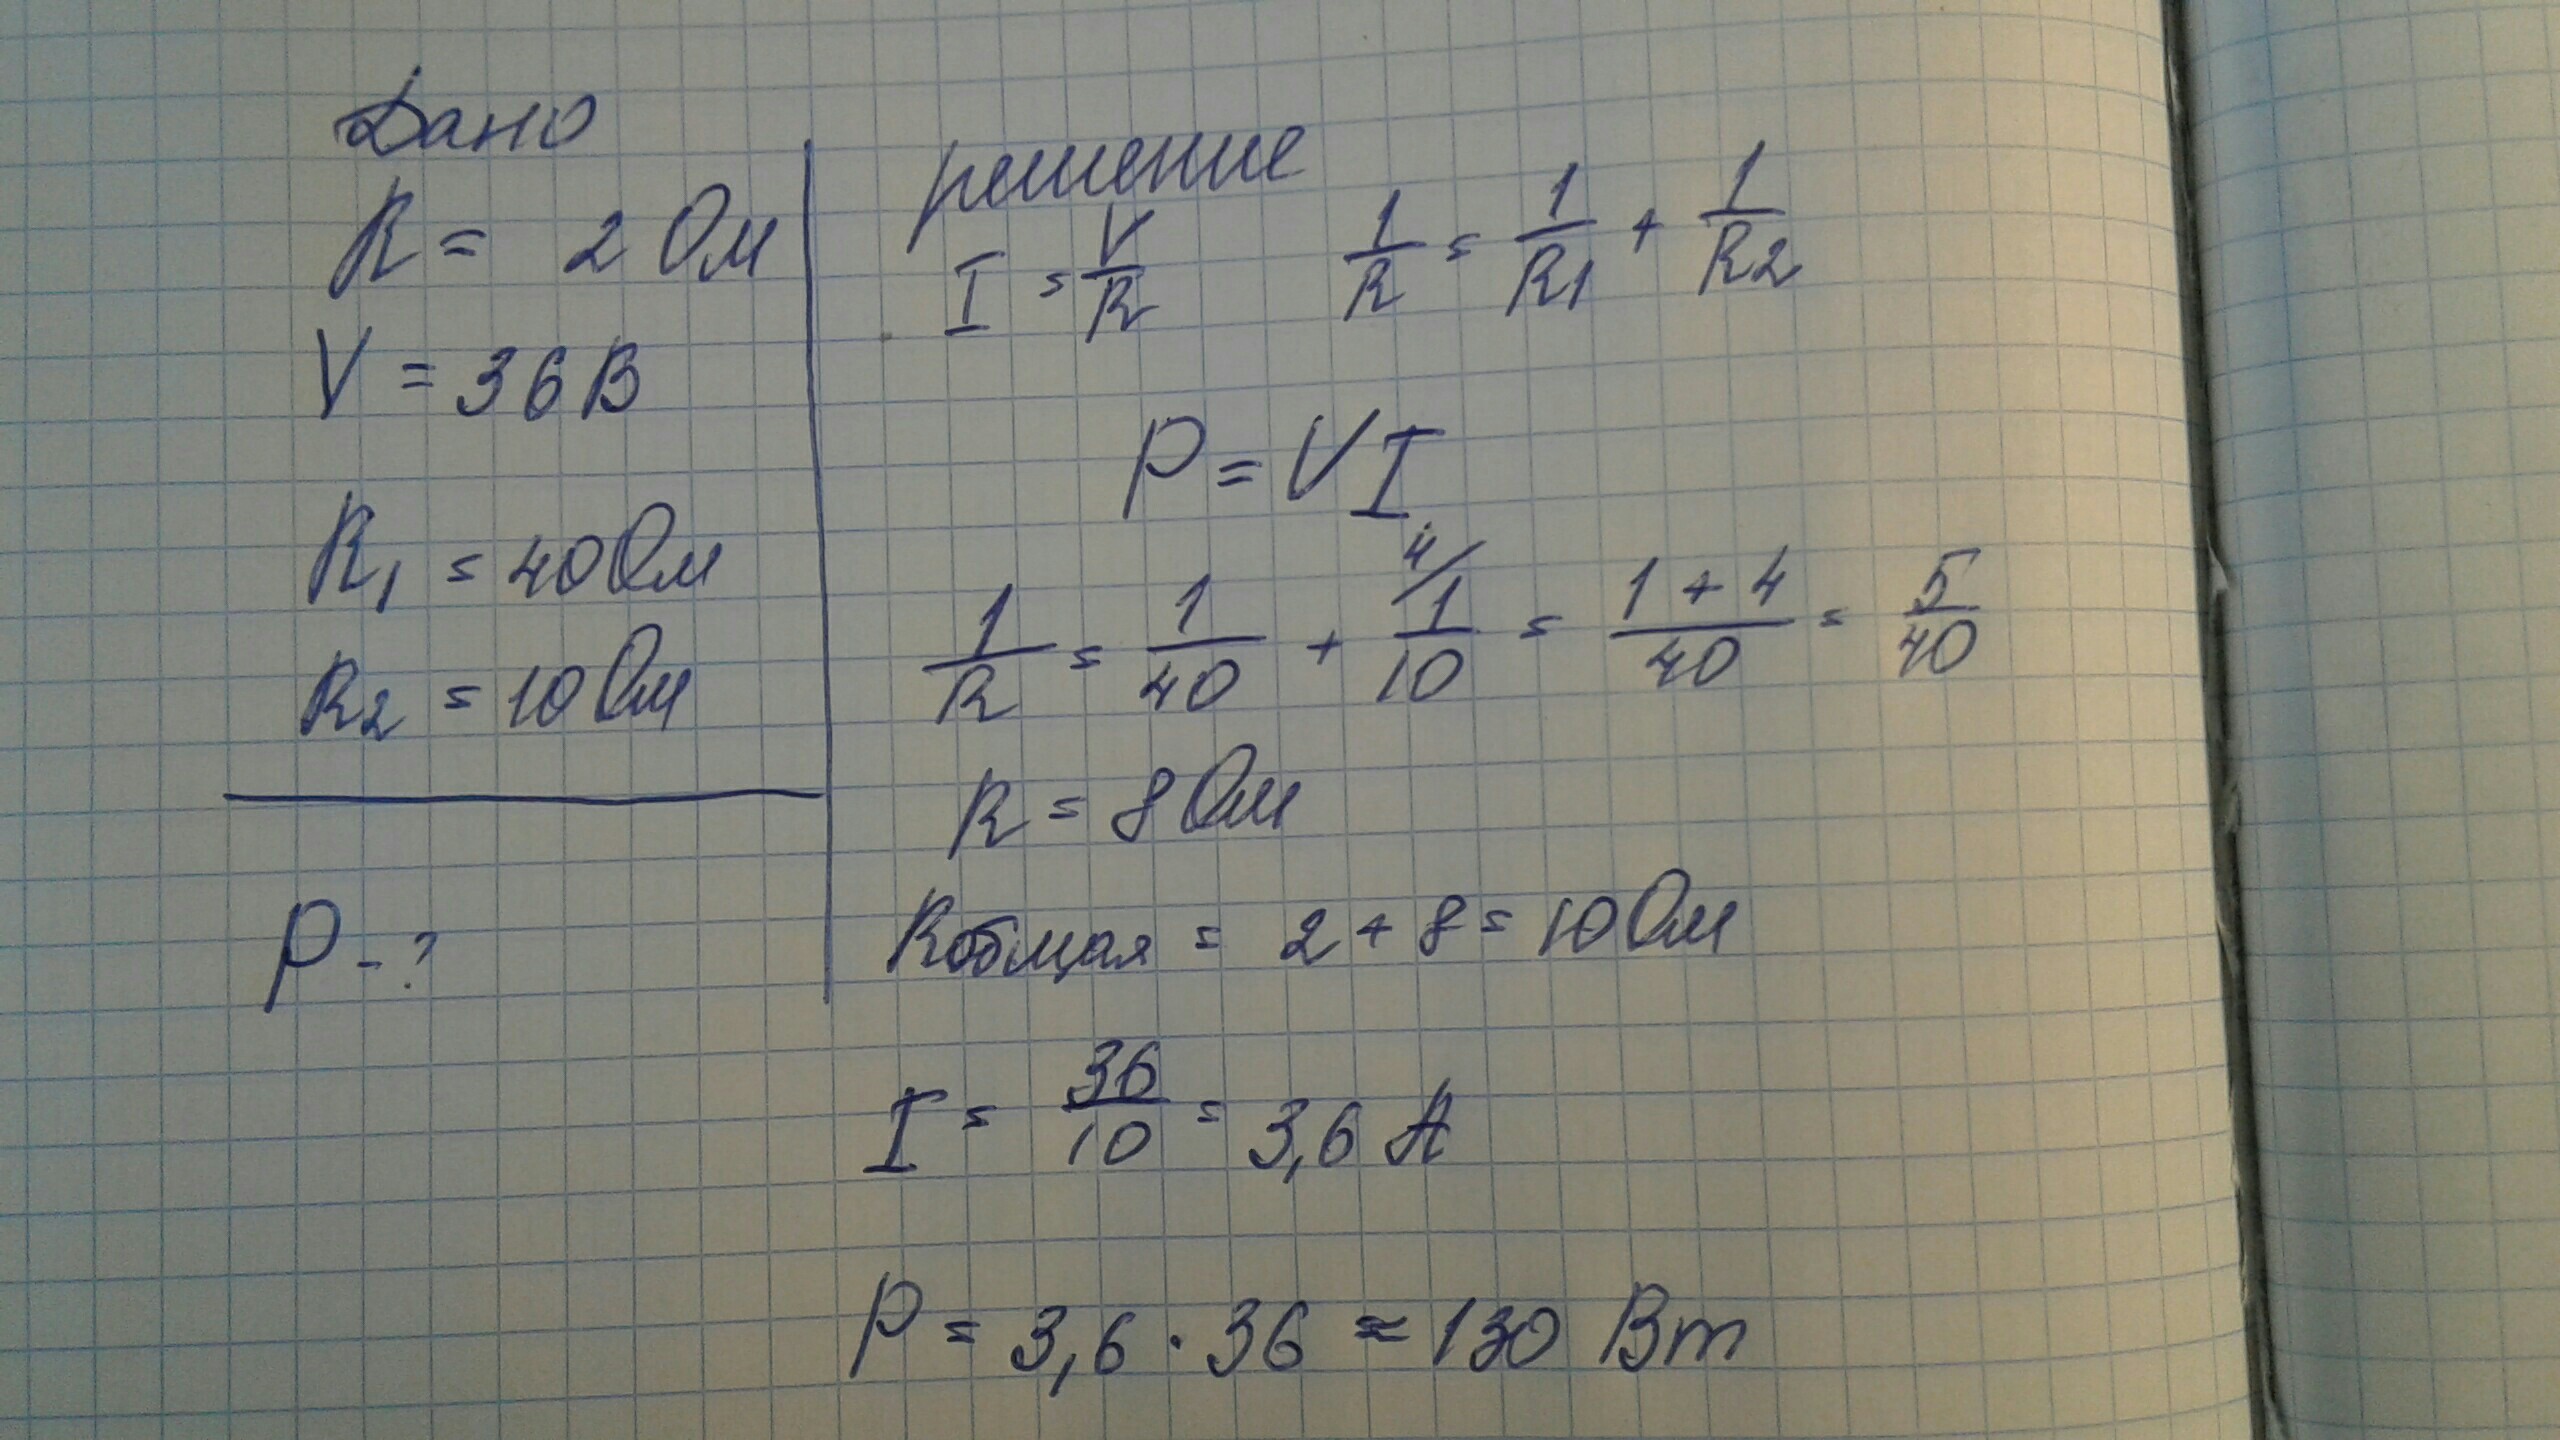 Дано
R = 2 Ом
V = 36 В
R1 = 40 Ом
R2 = 10 Ом
P - ?
решение
I = V/R 1/R = 1/R1 + 1/R2
P = VI
1/R = 1/40 + 4/ 1/10 = (1 + 4)/40 = 5/40
R = 8 Ом
Rобщая = 2 + 8 = 10 Ом
I = 36/10 = 3,6 А
P = 3,6 · 36 ≈ 130 Вт